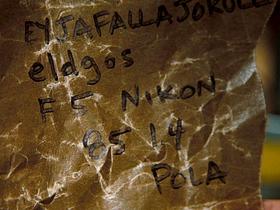 EYJAFALLAJOKULL
eldgos
F5 NIKON
85 14
POLA